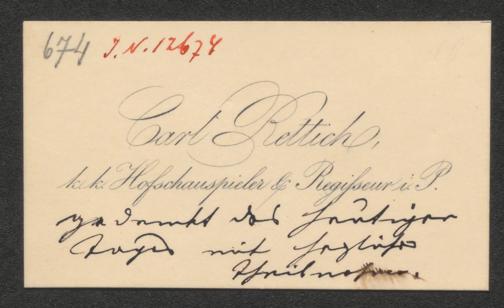 674 J.N. 12674
Carl Rettich,
k. k. Hofschauspieler & Regisseur i. P.
gedenkt des heutigen
Tages mit herzlicher
Theilnahme.